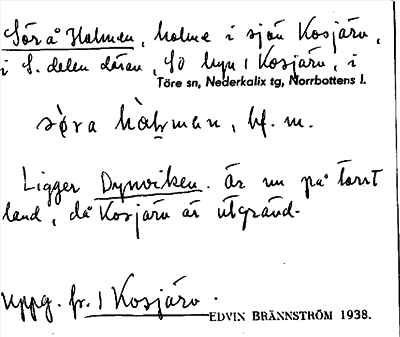 Sörå Holmen, holme i sjön Kosjärv,
i S. delen därav, SO byn 1 Kosjärv, i
Töre sn, Nederkalix tg, Norrbottens l.
sø̀ra hòlman, bf. m.
Ligger Dynviken. är nu på torrt
land, då Kosjärv är utgränd.
Uppg. fr. 1 Kosjärv.
EDVIN BRÄNNSTRÖM 1938.